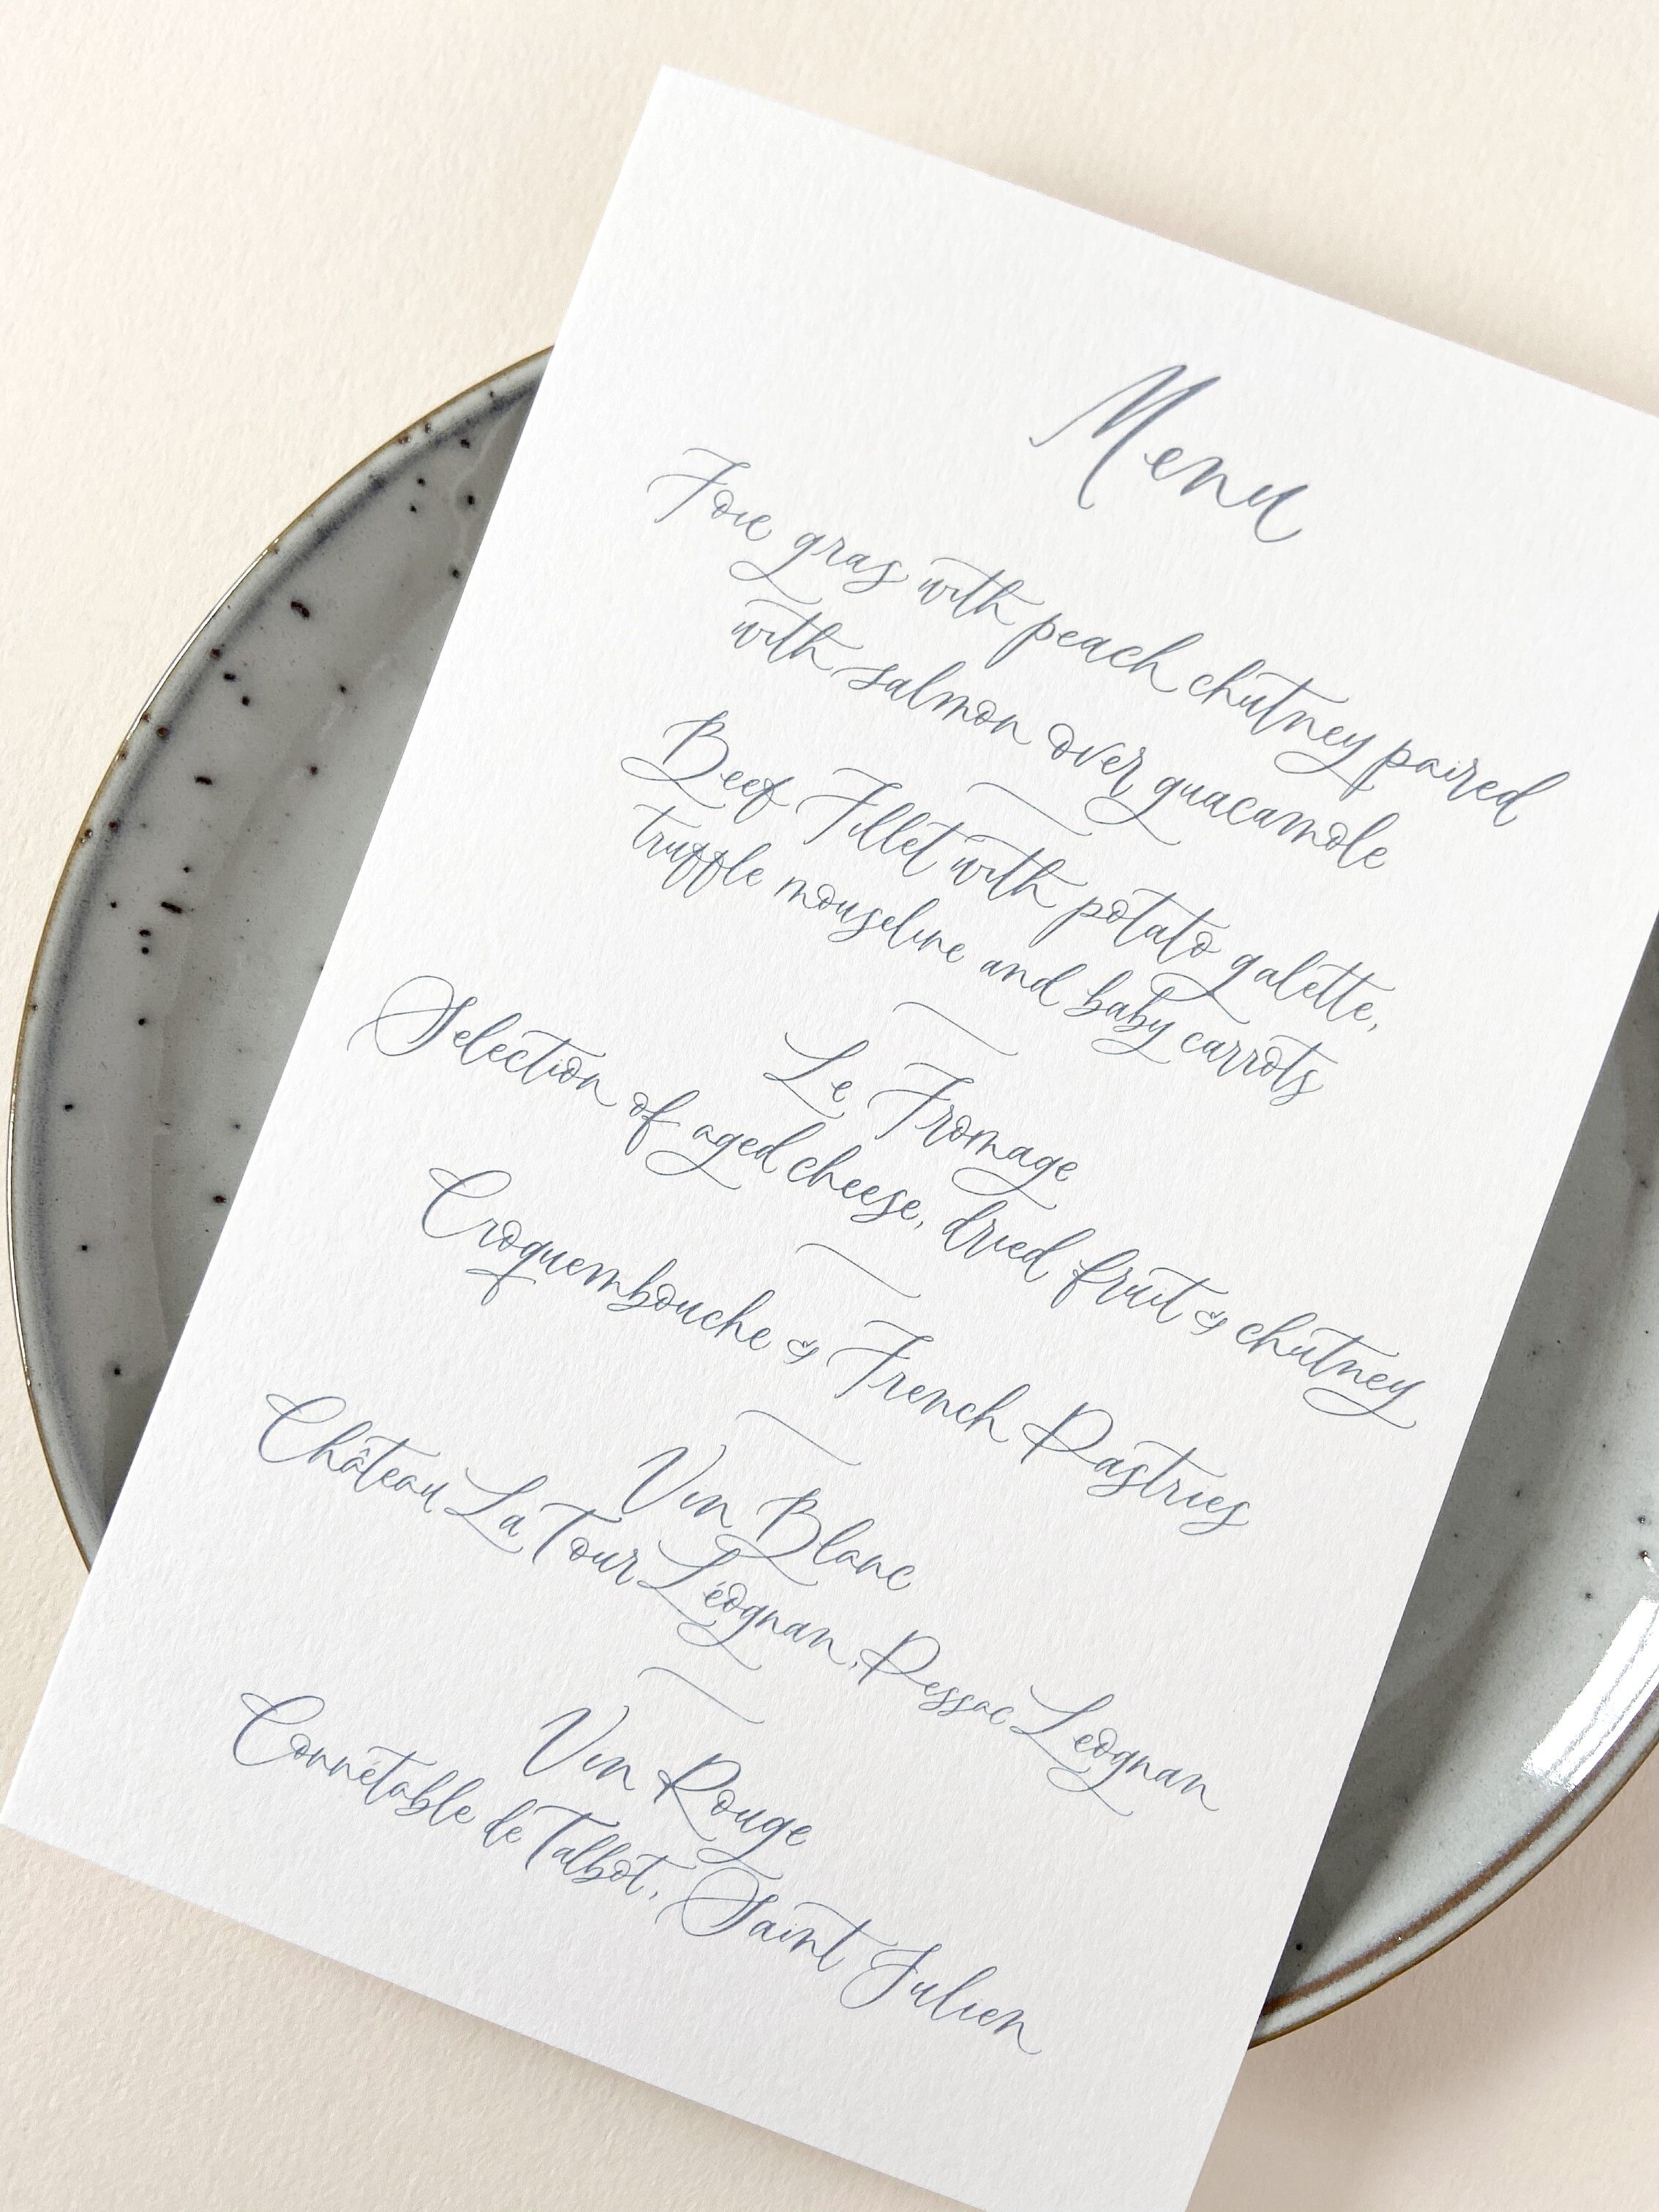 Menu
Foie gras with peach chutney paired
with salmon over guacamole
Beef Fillet with potato galette,
truffle mouseline and baby carrots
Le Fromage
Selection of aged cheese, dried fruit & chutney
Croquembouche & French Pastries
Vin Blanc
Château La Tour Léognan, Pessac Léognan
Vin Rouge
Connétable de Talbot, Saint Julien